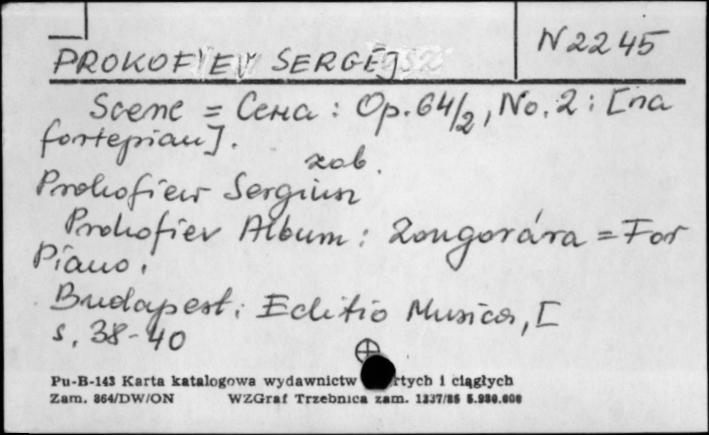 N2245
PROKOFIEV SERGEJ
Scene = Сена : Op. 64/2, No. 2 : [na
fortepian].
zob.
Prokofiew Sergiusz
Prokofiev Album : Zongorára = For
Piano.
Budapest : Editio Musica, [
s. 38-40
Pu-B-143 Karta katalogowa wydawnictw rtych i ciągłych
Zam. 864/DW/ON WZGraf Trzebnica zam. 1337/86 5.980.000